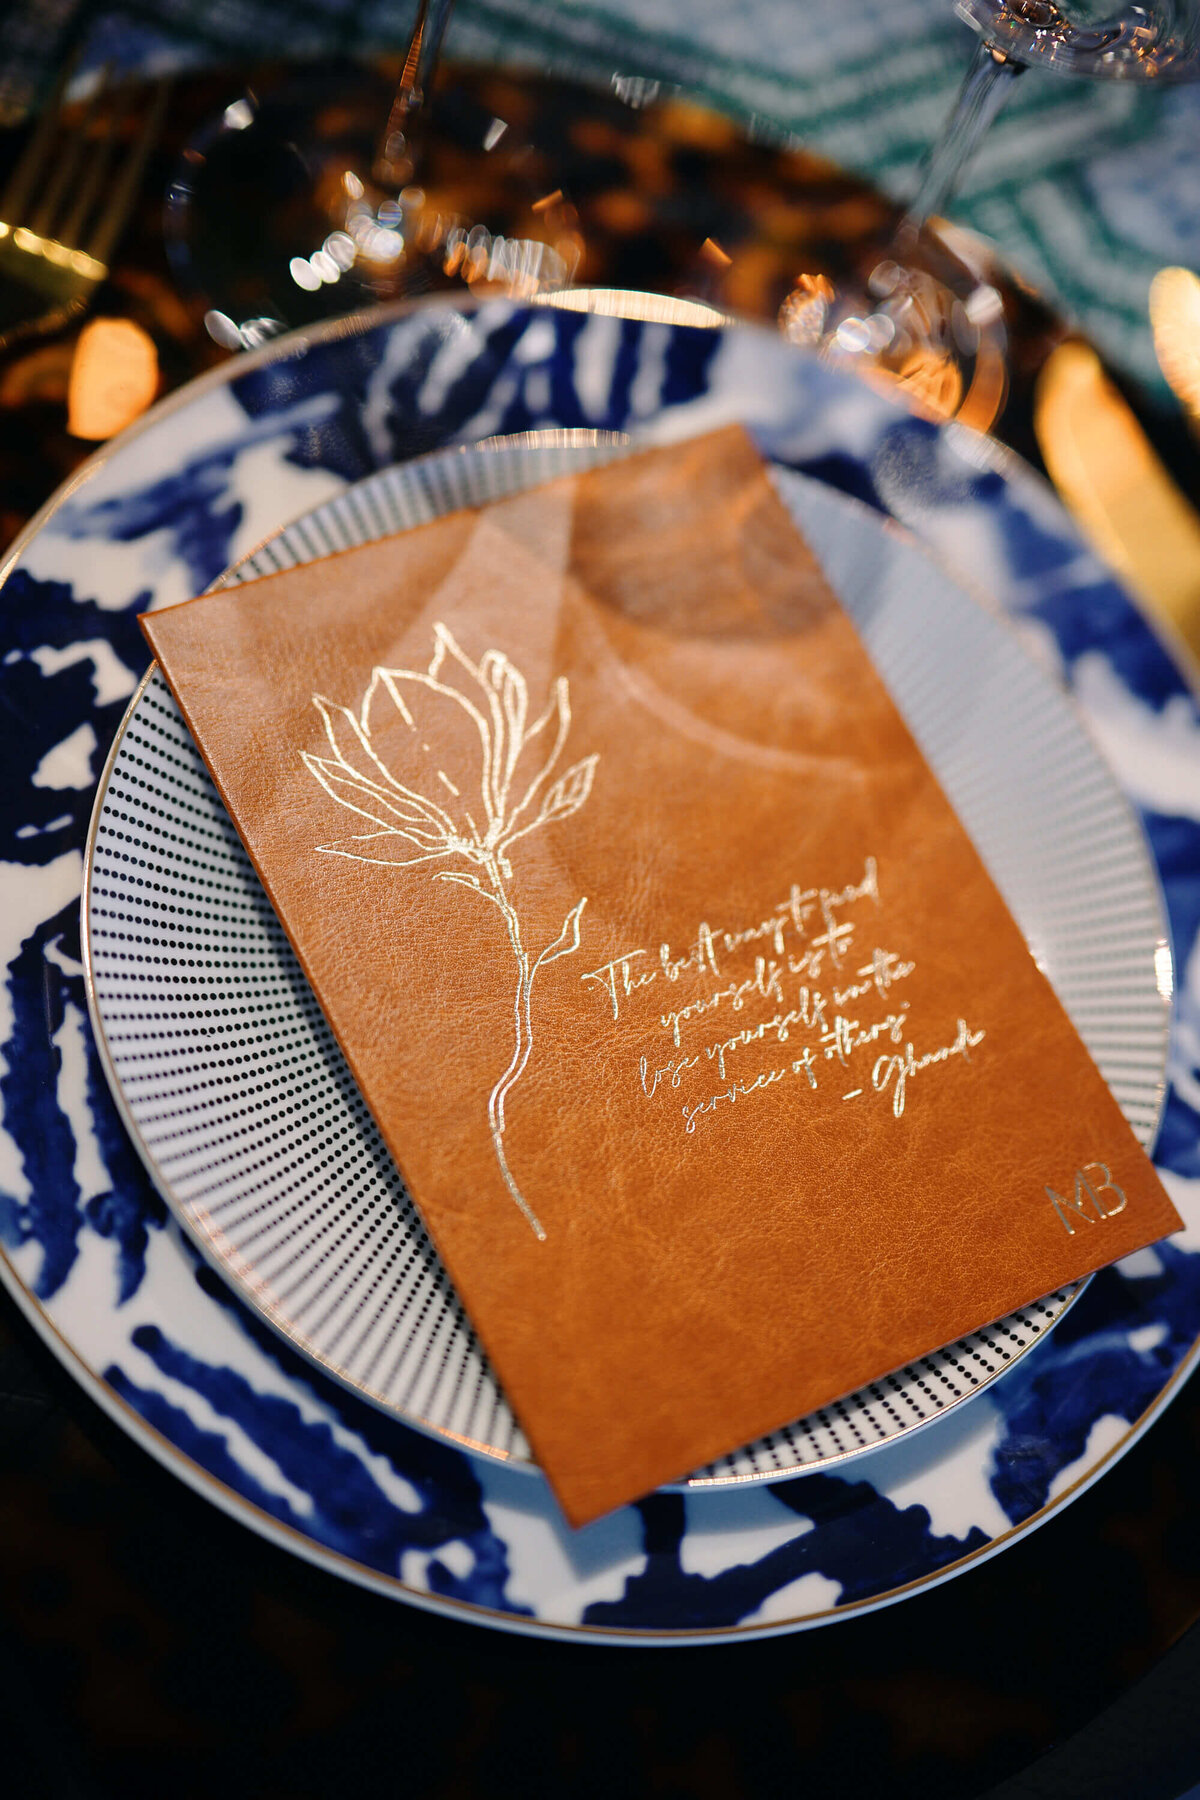 The best way to find
yourself is to
lose yourself in the
service of others"
- Ghandi
MB